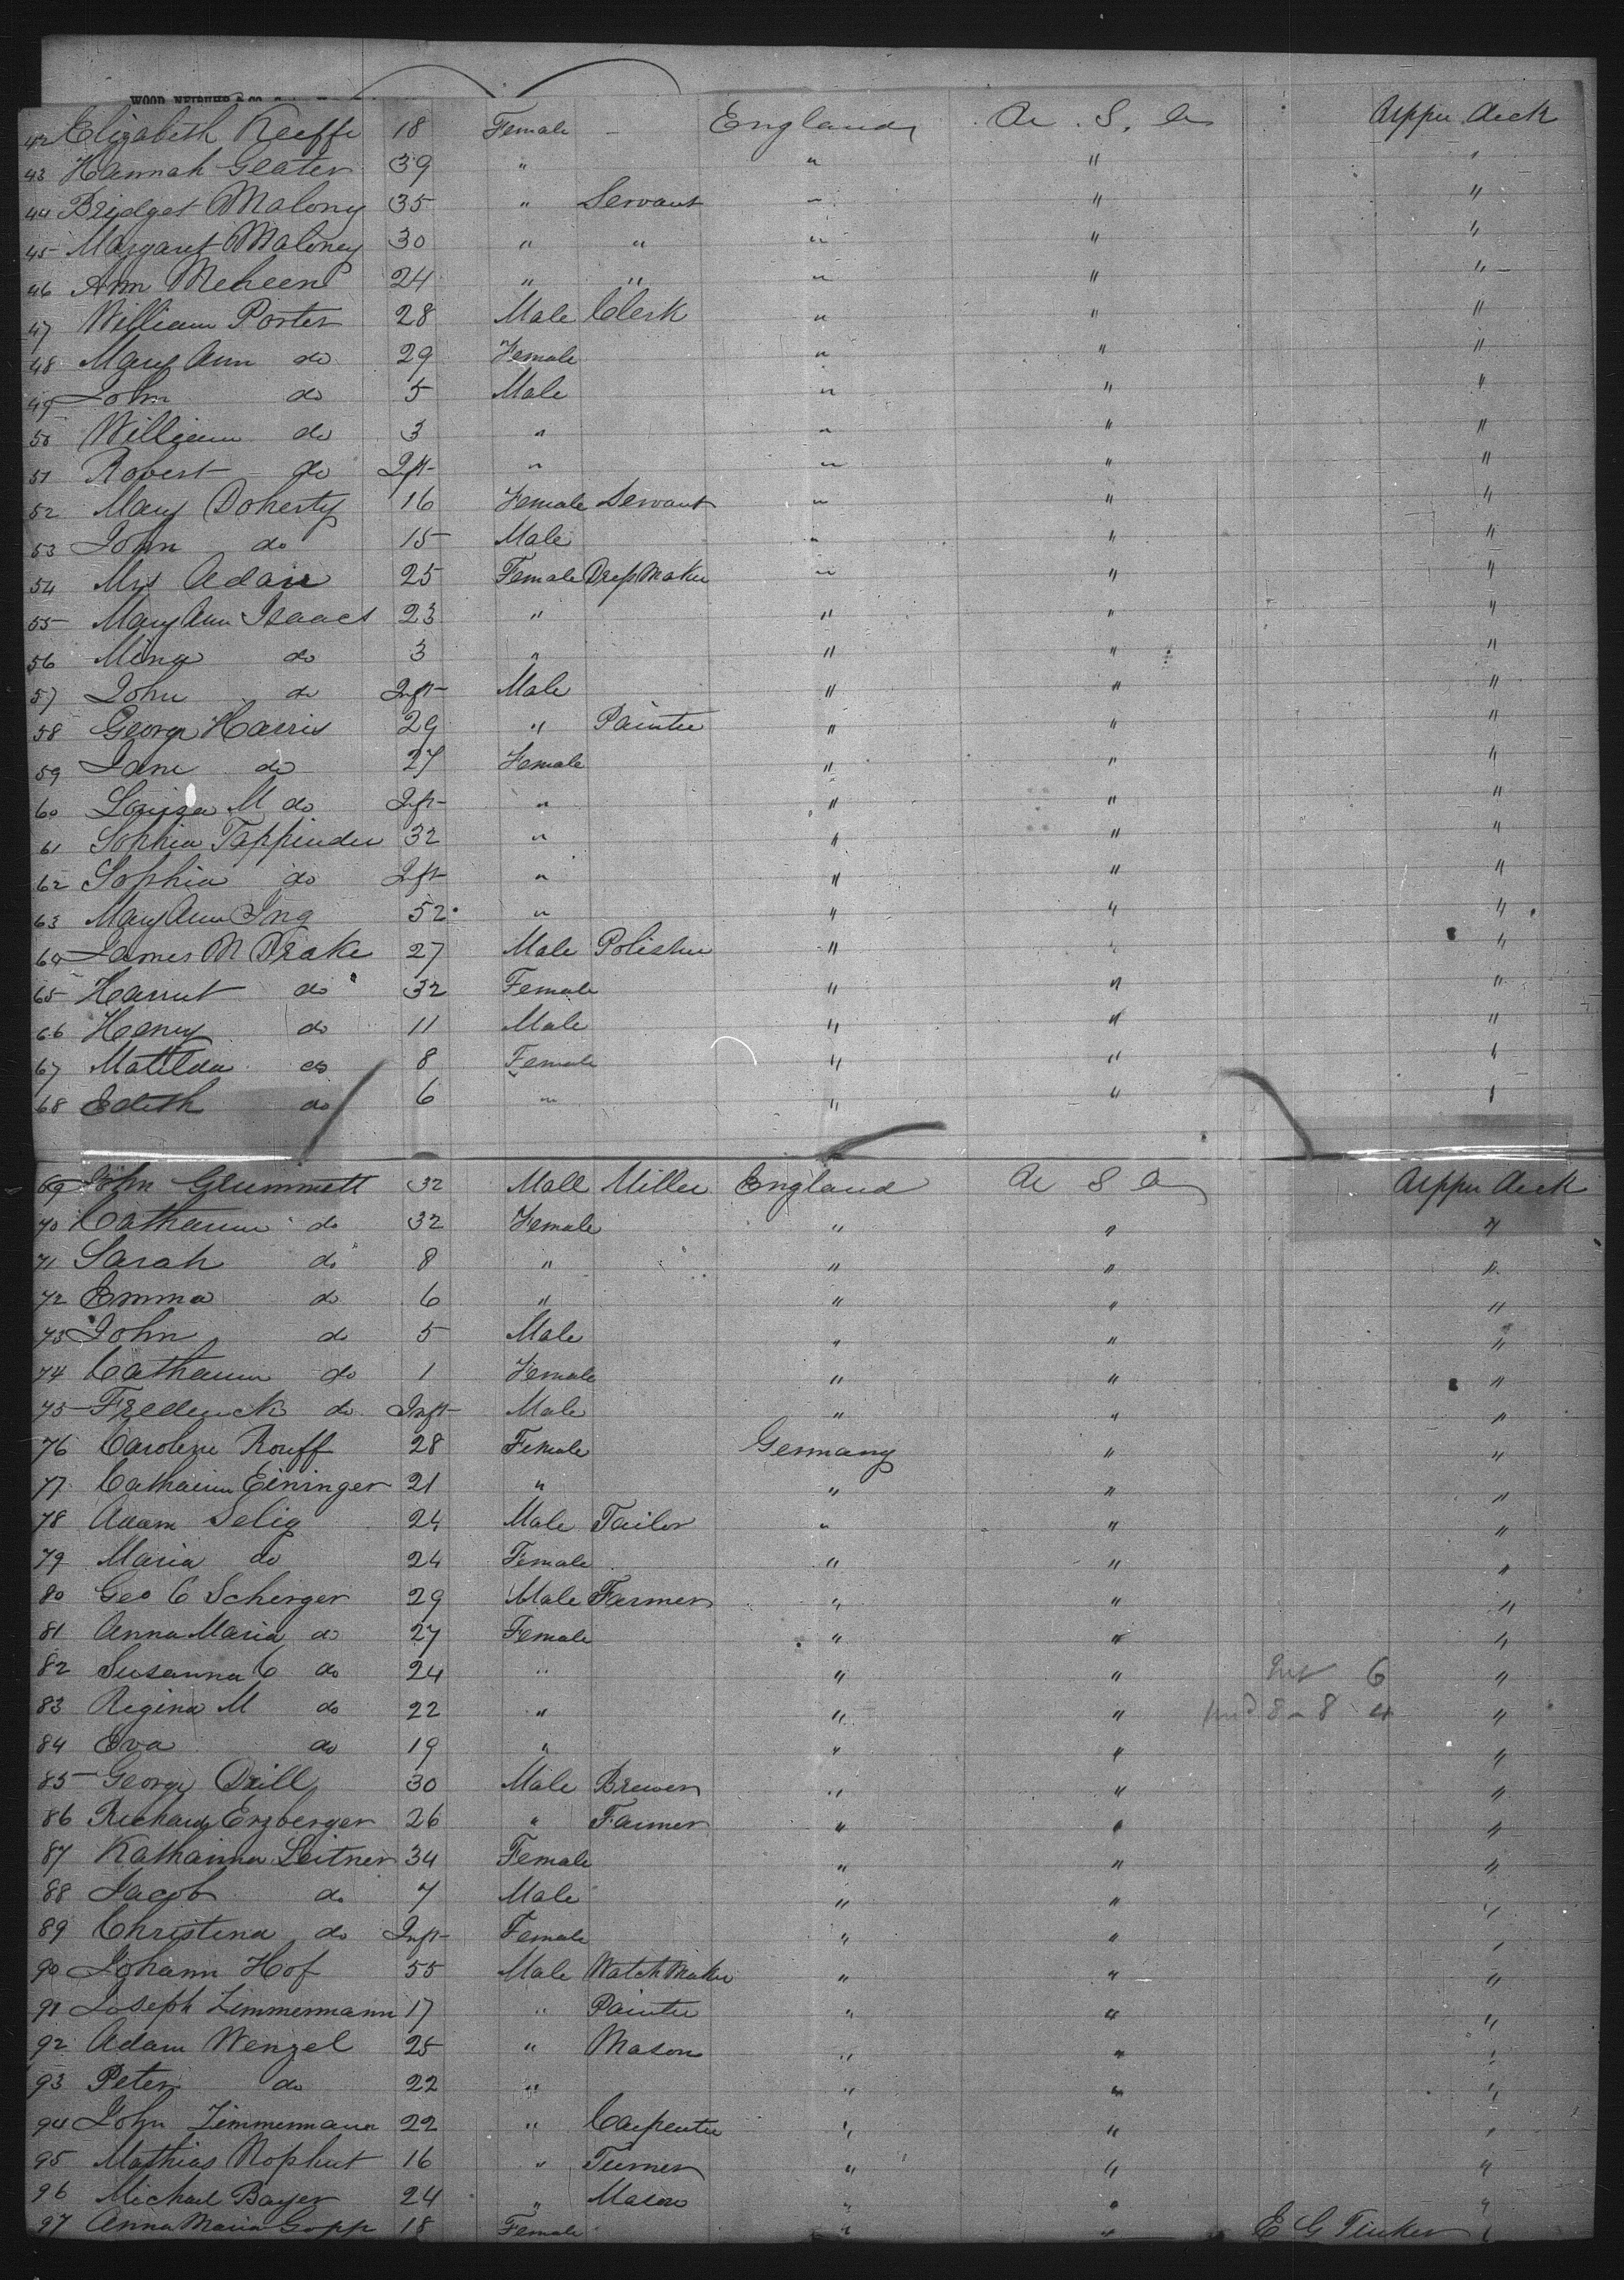 WOOD, NEIPUHR & CO.
42 Elizabeth Keeffe 18 Female – England U. S. A. Upper deck
43 Hannah Geater 39 " " " "
44 Bridget Malony 35 " Servant " " "
45 Margaret Maloney 30 " " " " "
46 Ann Meheen 24 " " " " "
47 William Porter 28 Male Clerk " " "
48 Mary Ann do 29 Female " " "
49 John do 5 Male " " "
50 William do 3 " " " "
51 Robert do Inft " " " "
52 Mary Doherty 16 Female Servant " " "
53 John do 15 Male " " "
54 Mrs Adair 25 Female Dress Maker " " "
55 Mary Ann Isaacs 23 " " " "
56 Mina do 3 " " " "
57 John do Inft Male " " "
58 George Harris 29 " Painter " " "
59 Jane do 27 Female " " "
60 Louisa M do Inft " " " "
61 Sophia Tappinder 32 " " " "
62 Sophia do Inft " " " "
63 Mary Ann Ing 52 " " " "
64 James M Drake 27 Male Polisher " " "
65 Harriet do 32 Female " " "
66 Henry do 11 Male " " "
67 Matilda do 8 Female " " "
68 Edith do 6 " " " "
69 John Grummett 32 Male Miller England U S A Upper deck
70 Catharine do 32 Female " " "
71 Sarah do 8 " " " "
72 Emma do 6 " " " "
73 John do 5 Male " " "
74 Catharine do 1 Female " " "
75 Frederick do Inft Male " " "
76 Caroline Rouff 28 Female Germany " "
77 Catharine Eininger 21 " " " "
78 Adam Selig 24 Male Tailor " " "
79 Maria do 24 Female " " "
80 Geo C Scherger 29 Male Farmer " " "
81 Anna Maria do 27 Female " " "
82 Susanna C do 24 " " " Inf 6 "
83 Regina M do 22 " " " und 8 – 8 4 "
84 Eva do 19 " " " "
85 George Drill 30 Male Brewer " " "
86 Richard Erzberger 26 " Farmer " " "
87 Katharina Leitner 34 Female " " "
88 Jacob do 7 Male " " "
89 Christina do Inft Female " " "
90 Johann Hof 55 Male Watch Maker " " "
91 Joseph Zimmermann 17 " Painter " " "
92 Adam Wenzel 25 " Mason " " "
93 Peter do 22 " " " "
94 John Zimmermann 22 " Carpenter " " "
95 Mathias Rophut 16 " Turner " " "
96 Michael Bayer 24 " Mason " " "
97 Anna Maria Gopp 18 Female " " E G Tinker "